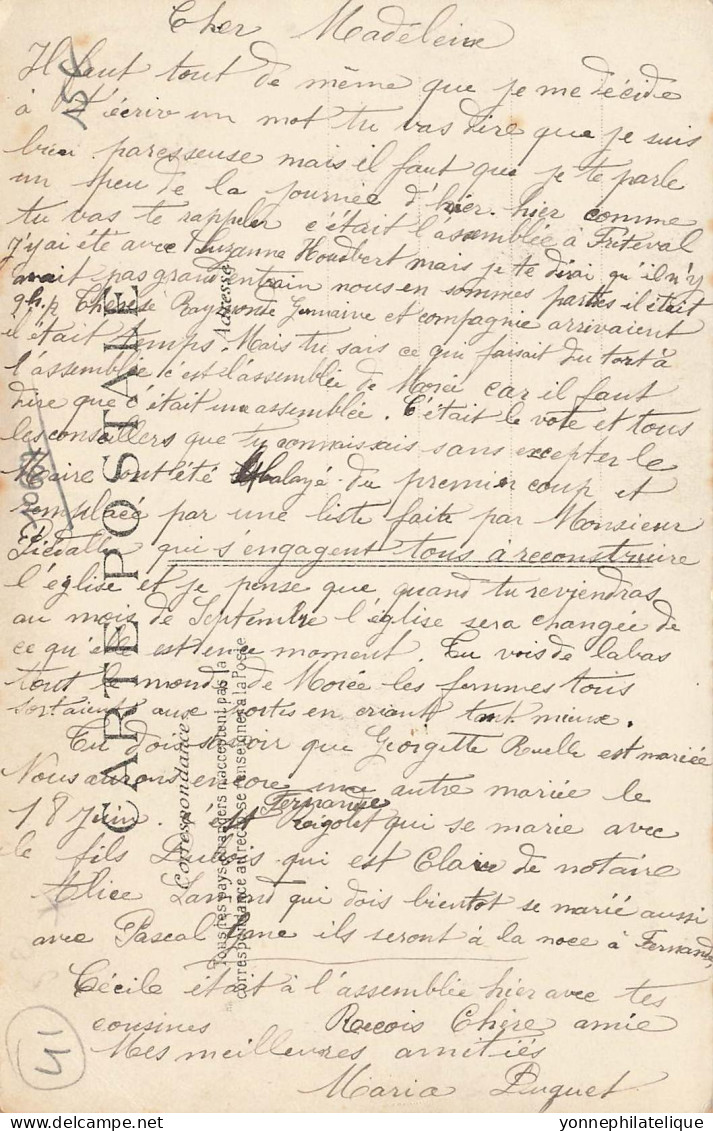 Cher Madeleine
Il faut tout de même que je me décide
à t'écrir un mot tu vas dire que je suis
bien paresseuse mais il faut que je te parle
un peu de la journée d'hier. hier comme
tu vas te rappeler c'était l'assemblée à Fréteval
j'y ai été avec Suzanne Houdbert mais je te dirai qu'il n'y
avait pas grand entrain nous en sommes parties il était
9h. Thérèse Raymonde Germaine et compagnie arrivaient
il était temps. Mais tu sais ce qui faisait du tort à
l'assemblée c'est l'assemblée de Morée car il faut
dire que c'était une assemblée. C'était le vote et tous
les conseillers que tu connaissais sans excepter le
Maire ont été balayé du premier coup et
remplacé par une liste faite par Monsieur
qui s'engagent tous à reconstruire
l'église et je pense que quand tu reviendras
au mois de Septembre l'église sera changée de
ce qu'elle est en ce moment. Tu vois de labas
tout le monde de Morée les femmes tous
sortaient aux portes en criant tant mieux.
Tu dois savoir que Georgette Ruelle est mariée
Nous aurons encore une autre mariée le
18 Juin. c'est Fernande Rigolet qui se marie avec
le fils Dubois qui est Clair de notaire
Alice qui dois bientot se marié aussi
avec Pascal ils seront à la noce à Fernande
Cécile était à l'assemblée hier avec tes
cousines Recois Chère amie
Mes meilleures amitiés
Maria Puguet
CARTE POSTALE
Correspondance
Adresse
Tous les pays étrangers n'acceptent pas la
correspondance au recto (se renseigner à la Poste
15€
41
yonnephilatelique@yahoo.fr